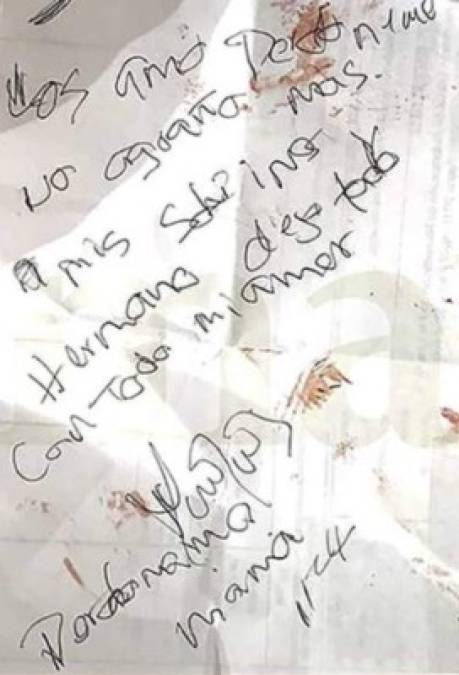 Los amo Perdonenme
no aguanto mas.
A mis Sobrinos
Hermano dejo todo
Con Todo mi amor
Perdoname
mamá